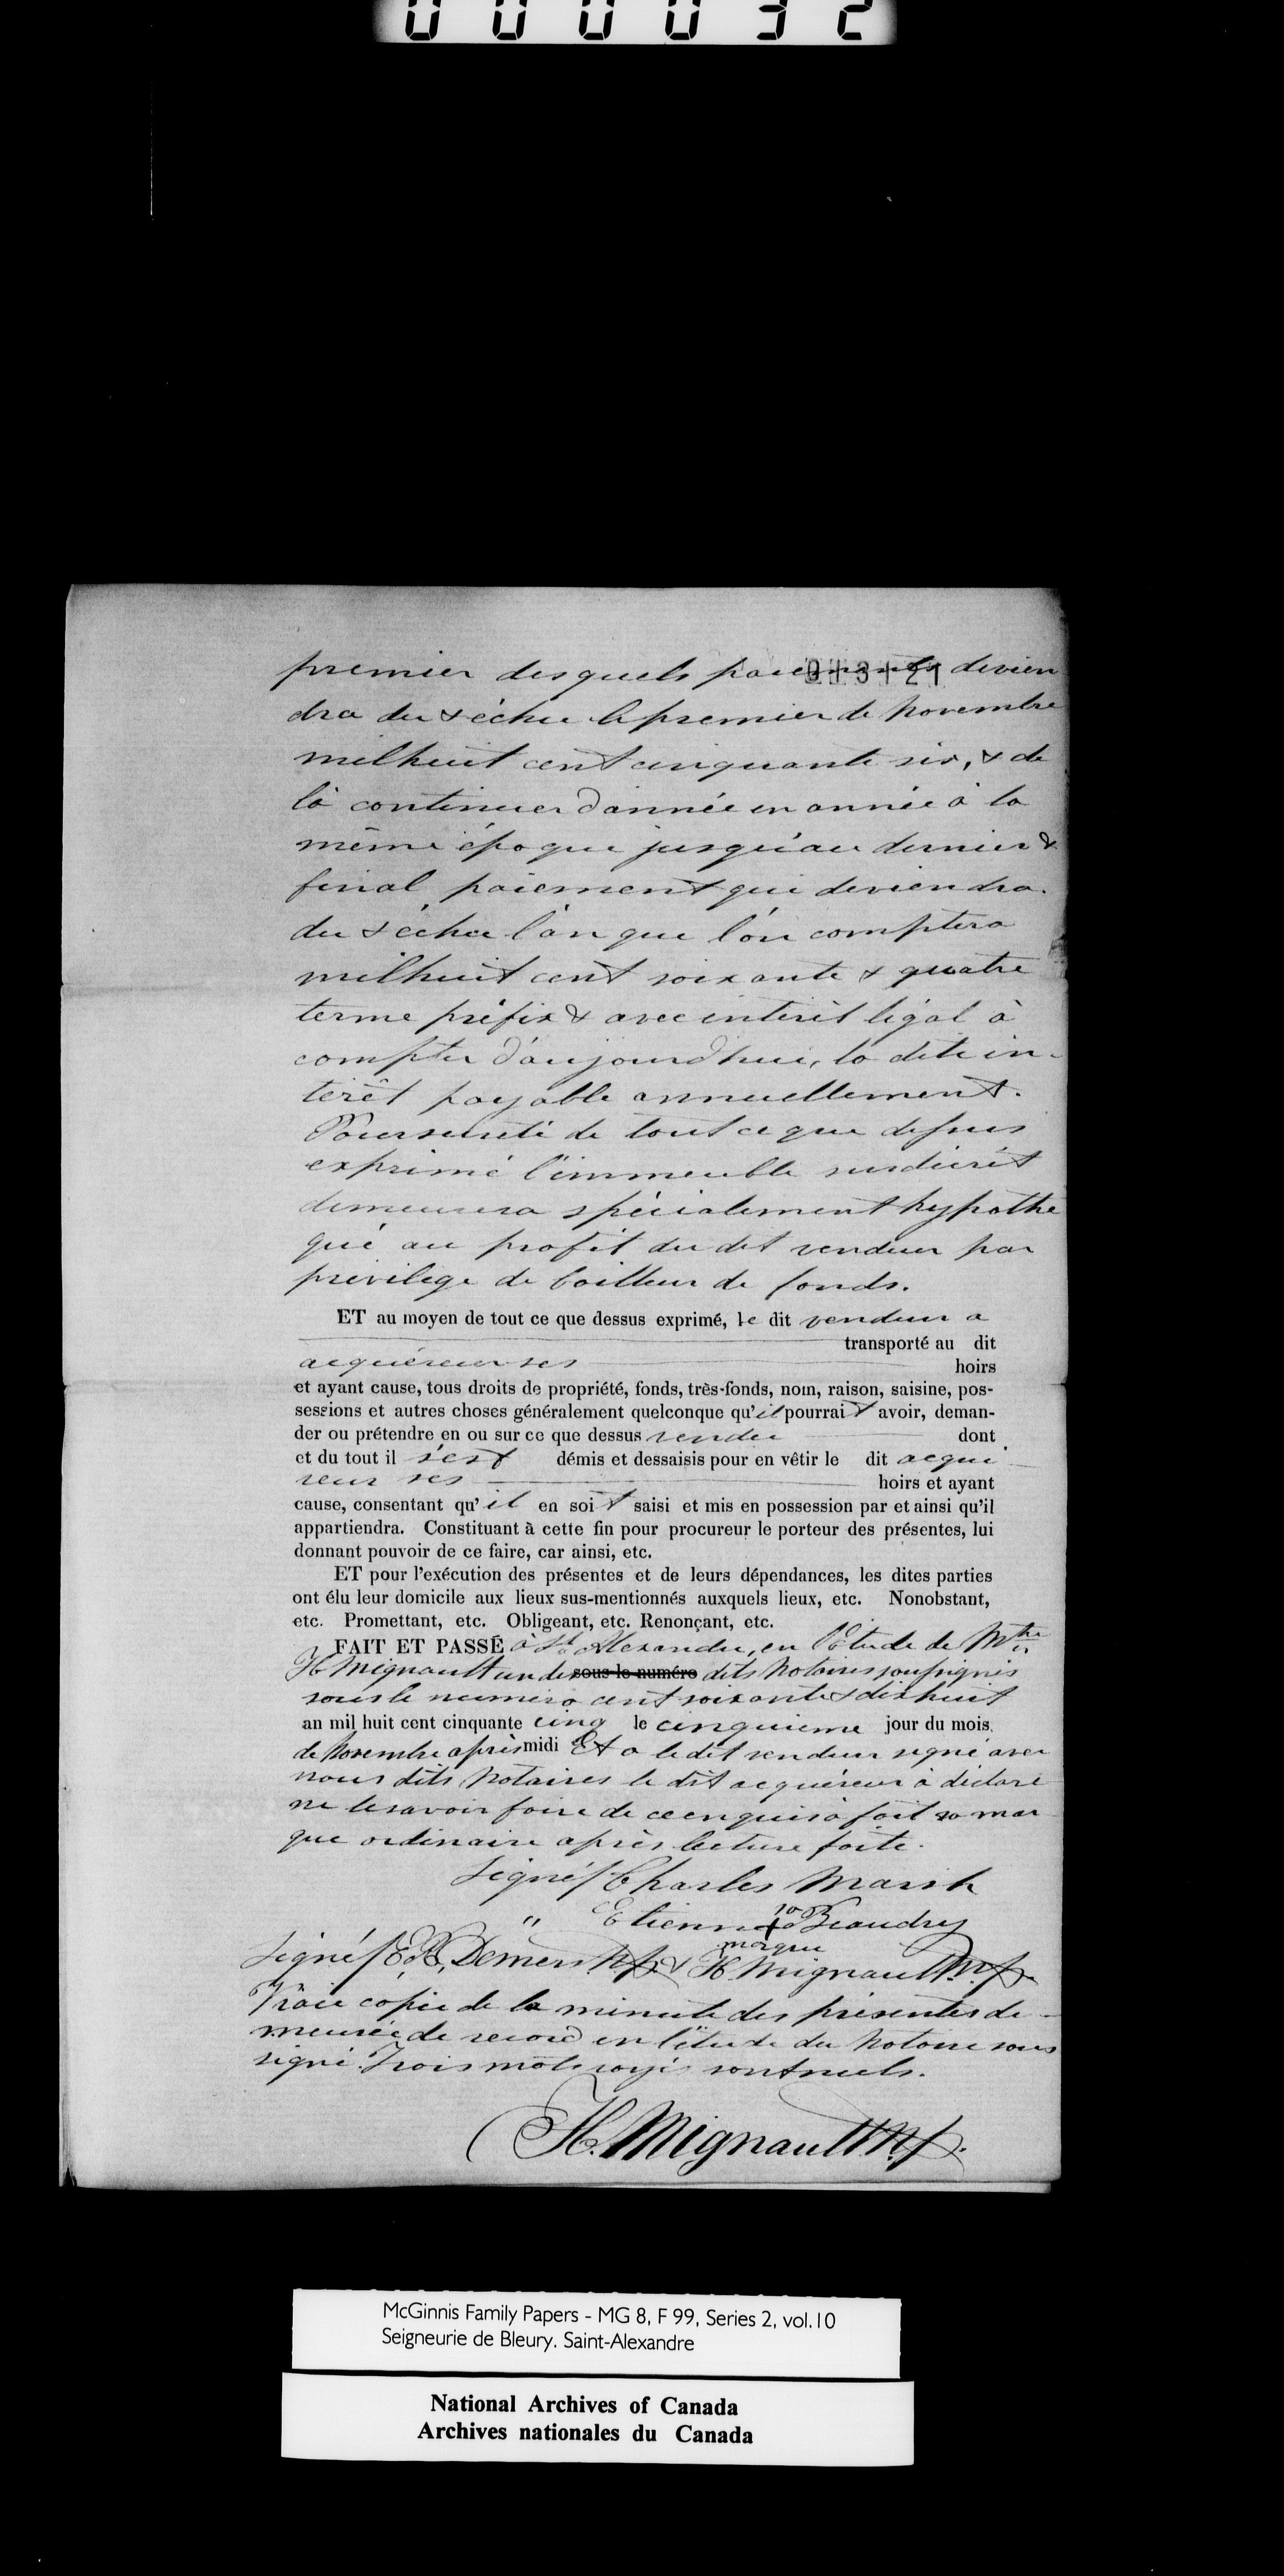 000032
premier desquels paiements devien
013121
dra du & échu le premier de Novembre
milhuit cent cinquante six, & de
là continuer d'année en année à la
même époque jusqu'au dernier &
final paiement qui deviendra
du & échu l'an que l'on comptera
milhuit cent soixante & quatre
terme préfix & avec intérêt légal à
compter d'aujourd'hui, la dite in-
térêt payable annuellement.
Pour sureté de tout ce que dessus
exprimé l'immeuble susdécrit
demeurera spécialement hypothe
qué au profit du dit vendeur par
privilege de bailleur de fonds.
ET au moyen de tout ce que dessus exprimé, le dit vendeur a
transporté au dit
acquéreur ses hoirs
et ayant cause, tous droits de propriété, fonds, très-fonds, nom, raison, saisine, pos-
sessions et autres choses généralement quelconque qu'il pourrait avoir, deman-
der ou prétendre en ou sur ce que dessus vendu dont
et du tout il s'est démis et dessaisis pour en vêtir le dit acqué
reur ses hoirs et ayant
cause, consentant qu'il en soit saisi et mis en possession par et ainsi qu'il
appartiendra. Constituant à cette fin pour procureur le porteur des présentes, lui
donnant pouvoir de ce faire, car ainsi, etc.
ET pour l'exécution des présentes et de leurs dépendances, les dites parties
ont élu leur domicile aux lieux sus-mentionnés auxquels lieux, etc. Nonobstant,
etc. Promettant, etc. Obligeant, etc. Renonçant, etc.
FAIT ET PASSÉ à St Alexandre, en l'Etude de Mtre
H Mignault un des sous le numéro dits Notaires soussignés
sous le numero cent soixante & dix huit
an mil huit cent cinquante cinq le cinquieme jour du mois
de Novembre après midi Et a le dit vendeur signé avec
nous dits Notaires le dit acquéreur à déclaré
ne le savoir faire de ce enquis à fait sa mar
que ordinaire après lecture faite.
Signé/ Charles Marsh
" Etienne sa + Beaudry
marque
Signé/ E.R. Demers N.P. & H Mignault N.P.
Vraie copie de la minute des présentes de-
meurée de record en l'étude du Notaire sous
signé. Trois mots rayés sont nuls.
H. Mignault N.P.
McGinnis Family Papers - MG 8, F 99, Series 2, vol.10
Seigneurie de Bleury. Saint-Alexandre
National Archives of Canada
Archives nationales du Canada